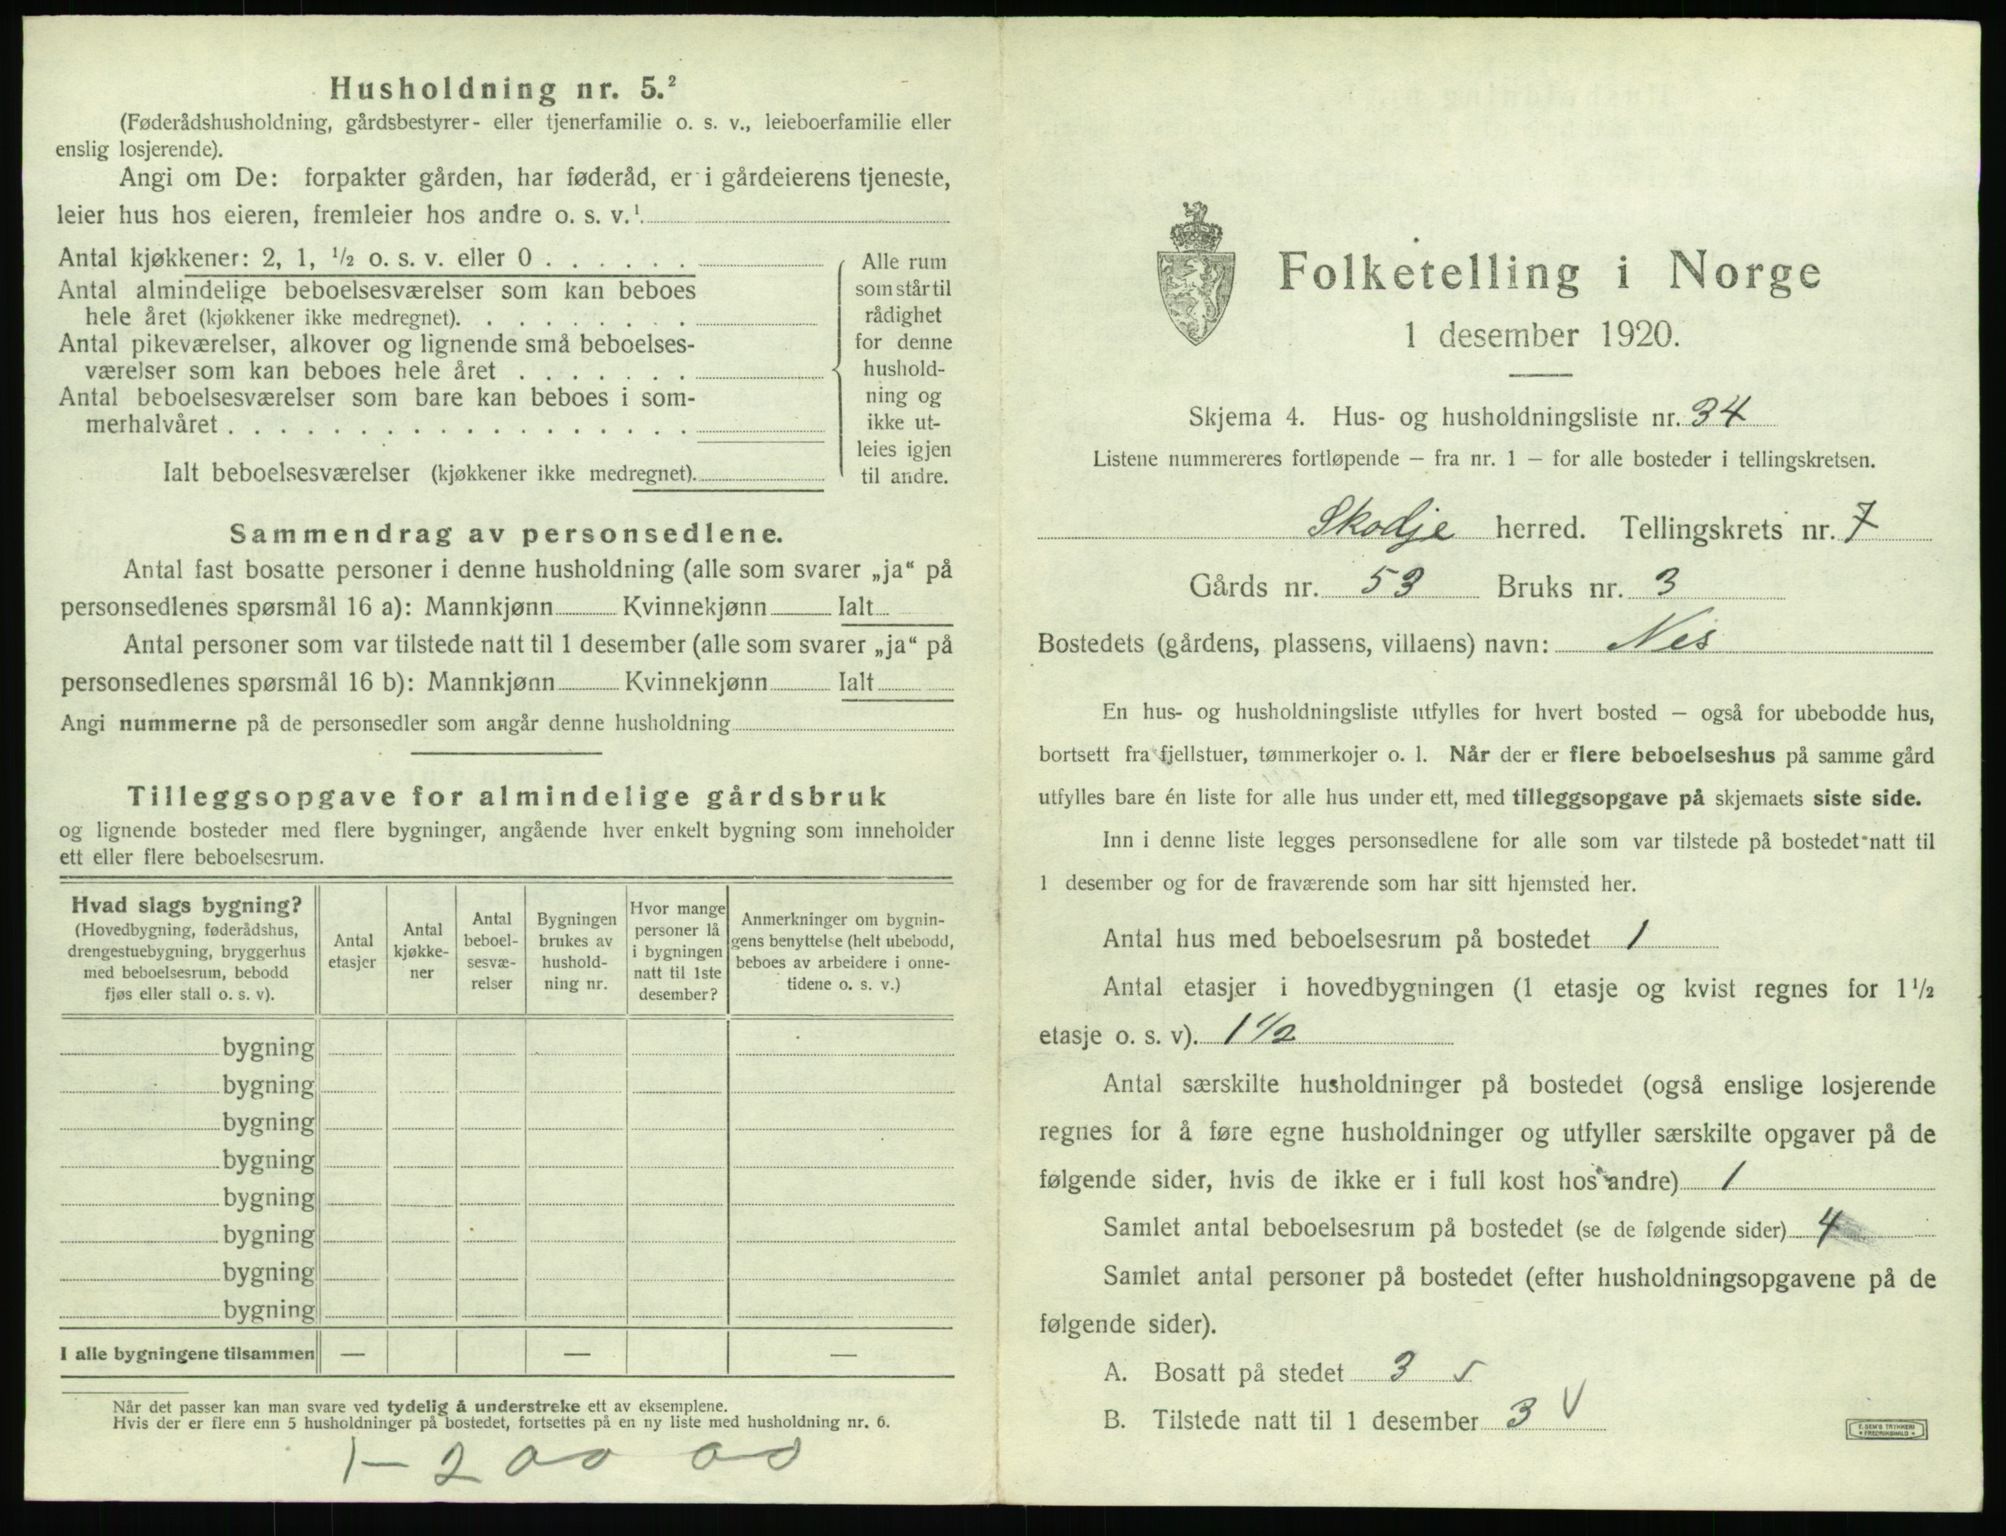 Husholdning nr. 5.²
(Føderådshusholdning, gårdsbestyrer- eller tjenerfamilie o. s. v., leieboerfamilie eller
enslig losjerende).
Angi om De: forpakter gården, har føderåd, er i gårdeierens tjeneste,
leier hus hos eieren, fremleier hos andre o. s. v.¹
Antal kjøkkener: 2, 1, ½ o. s. v. eller 0 . . . . . .
Antal almindelige beboelsesværelser som kan beboes
hele året (kjøkkener ikke medregnet). . . . . . . . .
Antal pikeværelser, alkover og lignende små beboelses-
værelser som kan beboes hele året . . . . . . .
Antal beboelsesværelser som bare kan beboes i som-
merhalvåret . . . . . . . . . . . . . . . . . .
Ialt beboelsesværelser (kjøkkener ikke medregnet).
Alle rum
som står til
rådighet
for denne
hushold-
ning og
ikke ut-
leies igjen
til andre.
Sammendrag av personsedlene.
Antal fast bosatte personer i denne husholdning (alle som svarer „ja“ på
personsedlenes spørsmål 16 a): Mannkjønn Kvinnekjønn Ialt
Antal personer som var tilstede natt til 1 desember (alle som svarer „ja“ på
personsedlenes spørsmål 16 b): Mannkjønn Kvinnekjønn Ialt
Angi nummerne på de personsedler som angår denne husholdning
Tilleggsopgave for almindelige gårdsbruk
og lignende bosteder med flere bygninger, angående hver enkelt bygning som inneholder
ett eller flere beboelsesrum.
Hvad slags bygning?
(Hovedbygning, føderådshus,
drengestuebygning, bryggerhus
med beboelsesrum, bebodd
fjøs eller stall o. s. v).
Antal
etasjer
Antal
kjøkke-
ner
Antal
beboel-
sesvæ-
relser
Bygningen
brukes av
hushold-
ning nr.
Hvor mange
personer lå
i bygningen
natt til 1ste
desember?
Anmerkninger om bygnin-
gens benyttelse (helt ubebodd,
beboes av arbeidere i onne-
tidene o. s. v.)
bygning
bygning
bygning
bygning
bygning
bygning
bygning
bygning
I alle bygningene tilsammen — — —
Når det passer kan man svare ved tydelig å understreke ett av eksemplene.
Hvis der er flere enn 5 husholdninger på bostedet, fortsettes på en ny liste med husholdning nr. 6.
1 - 200 00
Folketelling i Norge
1 desember 1920.
Skjema 4. Hus- og husholdningsliste nr. 34
Listene nummereres fortløpende — fra nr. 1 — for alle bosteder i tellingskretsen.
Skodje herred. Tellingskrets nr. 7
Gårds nr. 53 Bruks nr. 3
Bostedets (gårdens, plassens, villaens) navn: Nes
En hus- og husholdningsliste utfylles for hvert bosted — også for ubebodde hus,
bortsett fra fjellstuer, tømmerkojer o. l. Når der er flere beboelseshus på samme gård
utfylles bare én liste for alle hus under ett, med tilleggsopgave på skjemaets siste side.
Inn i denne liste legges personsedlene for alle som var tilstede på bostedet natt til
1 desember og for de fraværende som har sitt hjemsted her.
Antal hus med beboelsesrum på bostedet 1
Antal etasjer i hovedbygningen (1 etasje og kvist regnes for 1½
etasje o. s. v). 1½
Antal særskilte husholdninger på bostedet (også enslige losjerende
regnes for å føre egne husholdninger og utfyller særskilte opgaver på de
følgende sider, hvis de ikke er i full kost hos andre) 1
Samlet antal beboelsesrum på bostedet (se de følgende sider) 4
Samlet antal personer på bostedet (efter husholdningsopgavene på de
følgende sider).
A. Bosatt på stedet 3 v
B. Tilstede natt til 1 desember 3 V
E. SEM'S TRYKKERI
FREDRIKSHALD